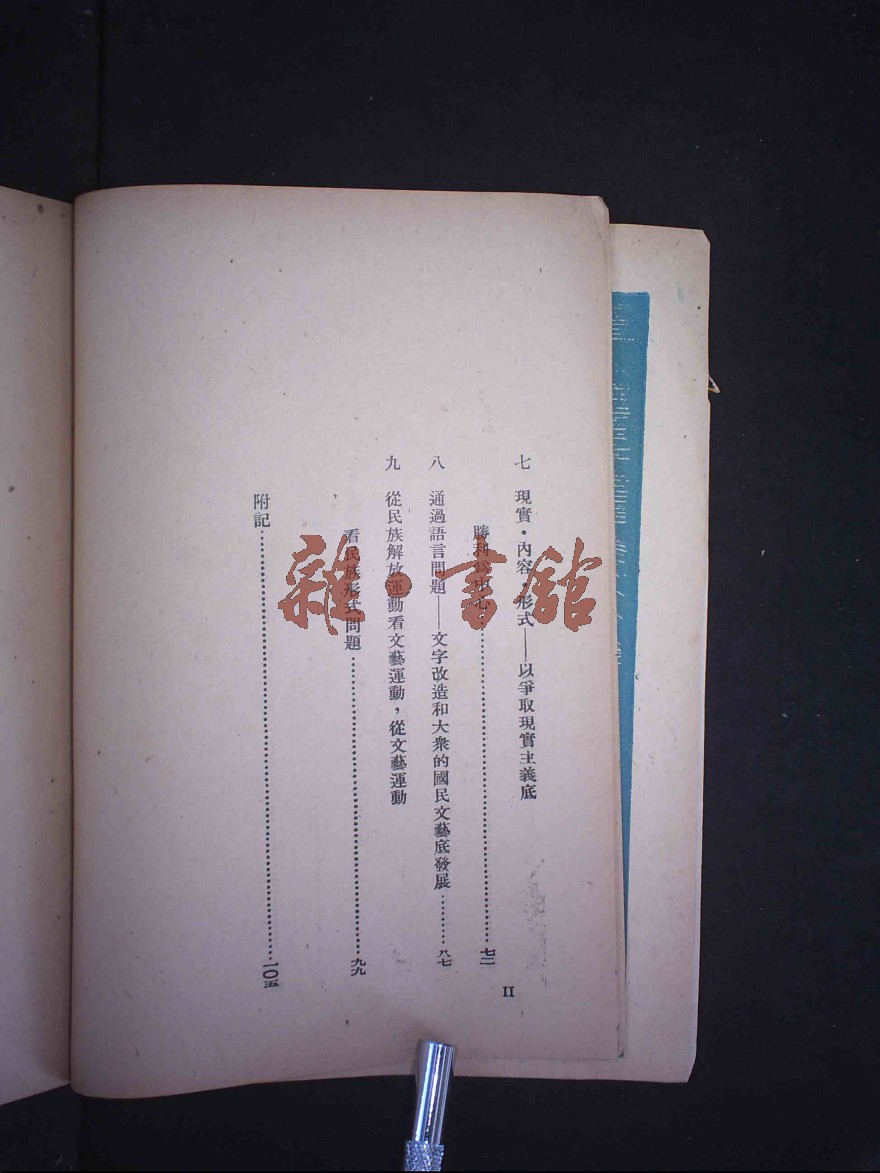 七　現實・內容・形式——以爭取現實主義底
勝利爲中心……………………七二
八　通過語言問題——文字改造和大衆的國民文藝底發展………八七
九　從民族解放運動看文藝運動，從文藝運動
看民族形式問題……………………九九
附記……………………一〇五
II
雜・書館